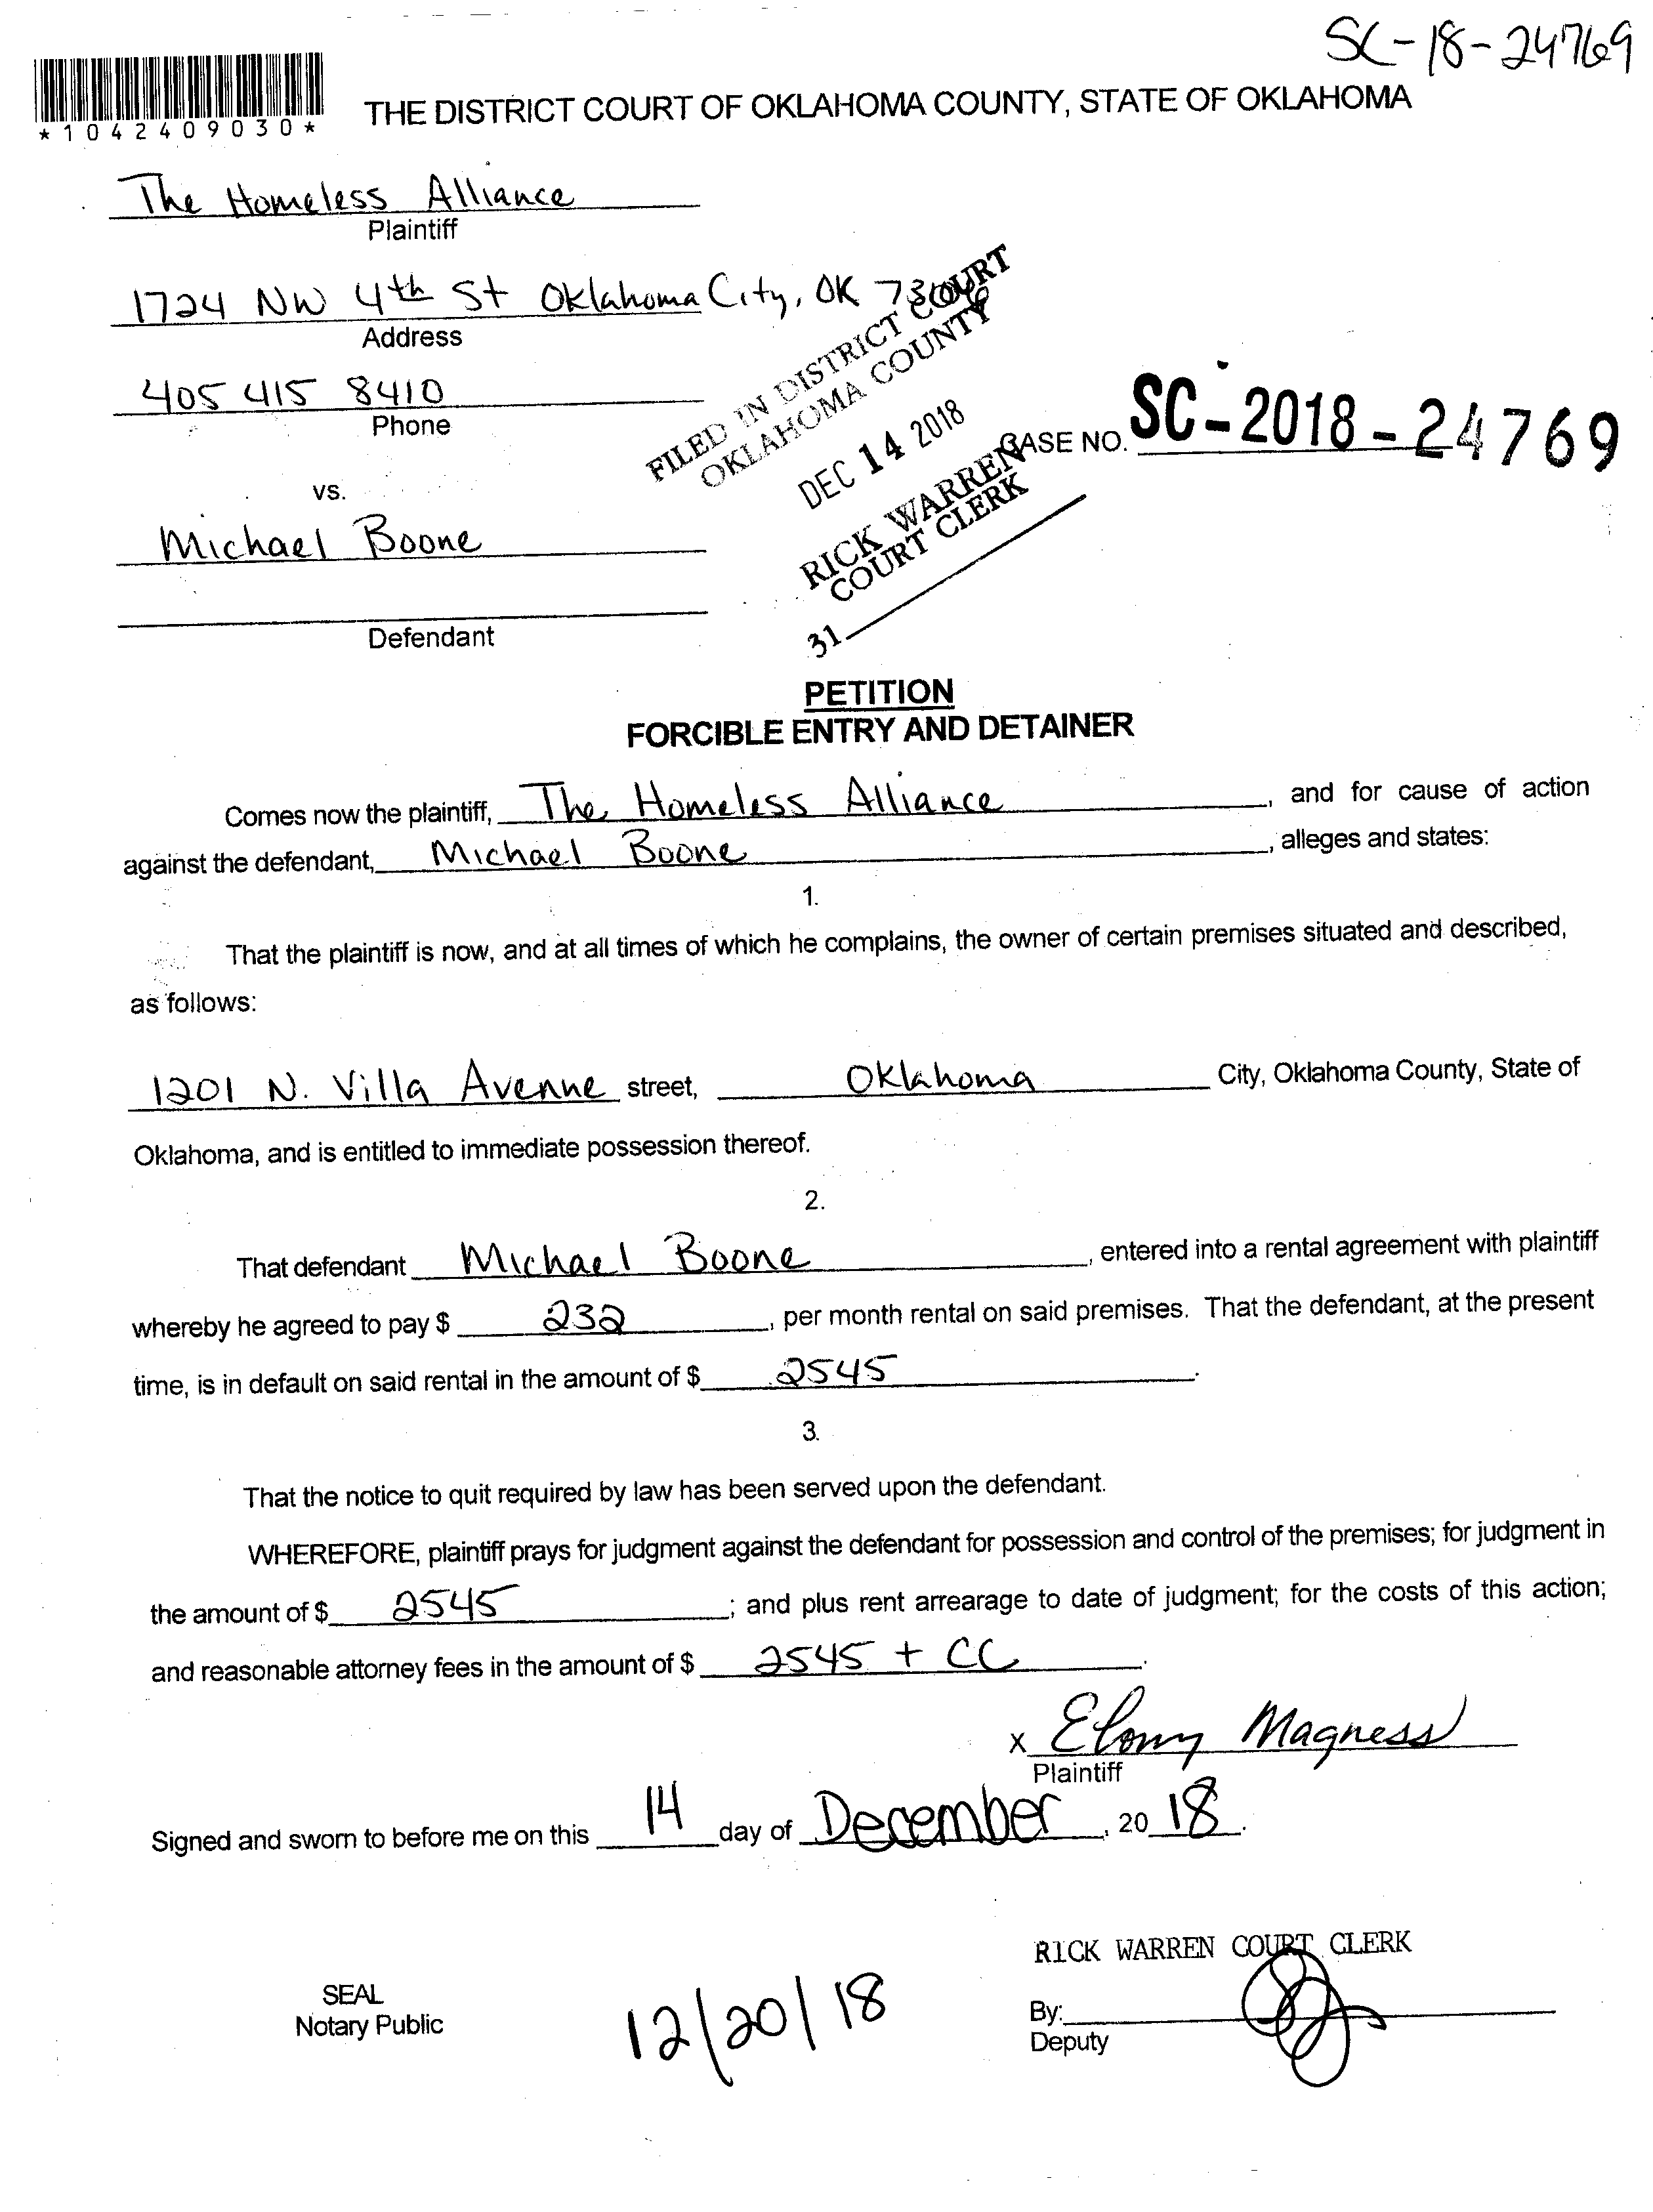 SC-18-24769
*1042409030*
THE DISTRICT COURT OF OKLAHOMA COUNTY, STATE OF OKLAHOMA
The Homeless Alliance
Plaintiff
1724 NW 4th St Oklahoma City, OK 73106
Address
405 415 8410
Phone
FILED IN DISTRICT COURT
OKLAHOMA COUNTY
DEC 14 2018
RICK WARREN
COURT CLERK
31
CASE NO. SC-2018-24769
vs.
Michael Boone
Defendant
PETITION
FORCIBLE ENTRY AND DETAINER
Comes now the plaintiff, The Homeless Alliance, and for cause of action
against the defendant, Michael Boone, alleges and states:
1.
That the plaintiff is now, and at all times of which he complains, the owner of certain premises situated and described,
as follows:
1201 N. Villa Avenue street, Oklahoma City, Oklahoma County, State of
Oklahoma, and is entitled to immediate possession thereof.
2.
That defendant Michael Boone, entered into a rental agreement with plaintiff
whereby he agreed to pay $ 232, per month rental on said premises. That the defendant, at the present
time, is in default on said rental in the amount of $ 2545.
3.
That the notice to quit required by law has been served upon the defendant.
WHEREFORE, plaintiff prays for judgment against the defendant for possession and control of the premises; for judgment in
the amount of $ 2545; and plus rent arrearage to date of judgment; for the costs of this action;
and reasonable attorney fees in the amount of $ 2545 + CC.
x Ebony Magness
Plaintiff
Signed and sworn to before me on this 14 day of December, 2018.
RICK WARREN COURT CLERK
SEAL
Notary Public
12/20/18
By:
Deputy